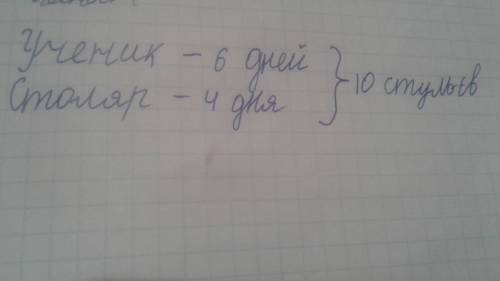 Ученик - 6 дней } 10 стульев
Столяр - 4 дня